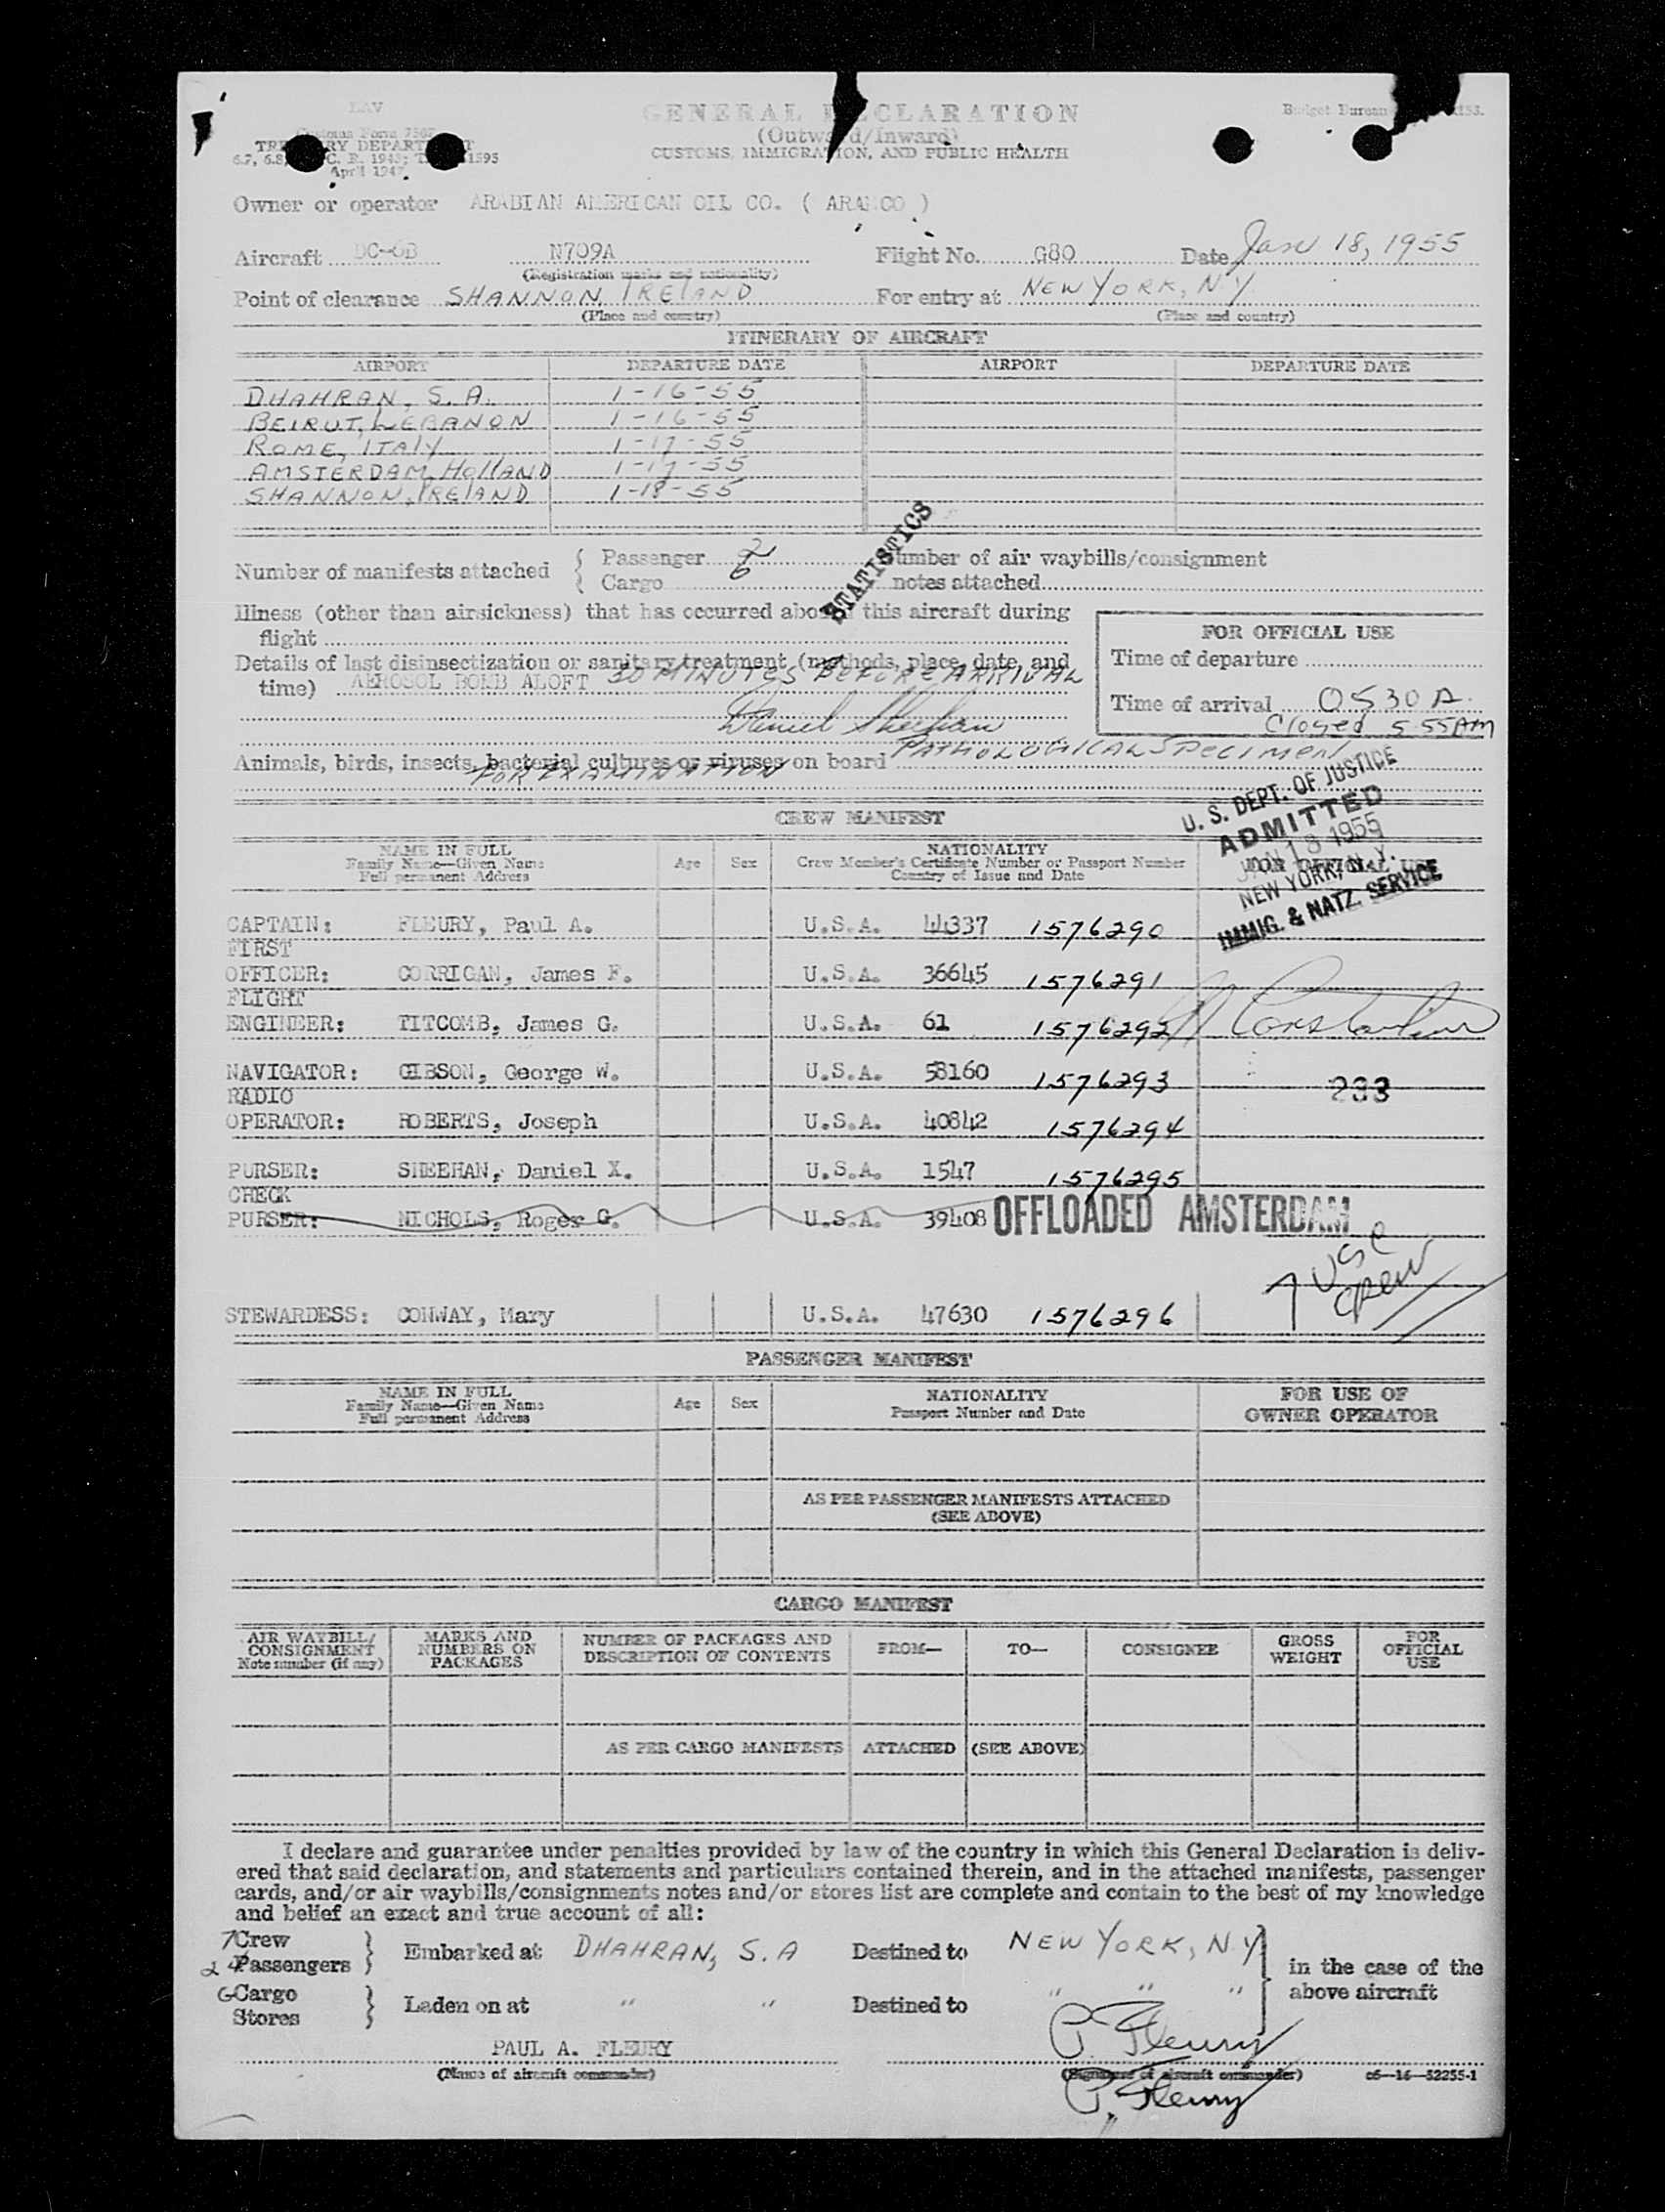 GENERAL DECLARATION
(Outward/Inward)
CUSTOMS, IMMIGRATION, AND PUBLIC HEALTH
Customs Form 7507
April 1947
Budget Bureau
Owner or operator ARABIAN AMERICAN OIL CO. ( ARAMCO )
Aircraft DC-6B N709A Flight No. G80 Date Jan 18, 1955
(Registration marks and nationality)
Point of clearance SHANNON, IRELAND For entry at NEW YORK, N.Y
(Place and country) (Place and country)
ITINERARY OF AIRCRAFT
AIRPORT DEPARTURE DATE AIRPORT DEPARTURE DATE
DHAHRAN, S. A. 1-16-55
BEIRUT, LEBANON 1-16-55
ROME, ITALY 1-17-55
AMSTERDAM, HOLLAND 1-17-55
SHANNON, IRELAND 1-18-55
STATISTICS
Number of manifests attached { Passenger 2 Number of air waybills/consignment
{ Cargo 6 notes attached
Illness (other than airsickness) that has occurred aboard this aircraft during
flight
FOR OFFICIAL USE
Details of last disinsectization or sanitary treatment (methods, place, date, and
time) AEROSOL BOMB ALOFT 30 MINUTES BEFORE ARRIVAL
Daniel Sheehan
Time of departure
Time of arrival 0530 A.
Closed 5 55AM
Animals, birds, insects, bacterial cultures or viruses on board PATHOLOGICAL SPECIMEN
FOR EXAMINATION
U. S. DEPT. OF JUSTICE
ADMITTED
JAN 18 1955
NEW YORK, N. Y.
IMMIG. & NATZ. SERVICE
CREW MANIFEST
NAME IN FULL Age Sex NATIONALITY
Family Name—Given Name Crew Member's Certificate Number or Passport Number
Full permanent Address Country of Issue and Date
CAPTAIN: FLEURY, Paul A. U.S.A. 44337 1576290
FIRST
OFFICER: CORRIGAN, James F. U.S.A. 36645 1576291
FLIGHT
ENGINEER: TITCOMB, James G. U.S.A. 61 1576292
NAVIGATOR: GIBSON, George W. U.S.A. 58160 1576293
233
RADIO
OPERATOR: ROBERTS, Joseph U.S.A. 40842 1576294
PURSER: SHEEHAN, Daniel X. U.S.A. 1547 1576295
CHECK
PURSER: NICHOLS, Roger G. U.S.A. 39408 OFFLOADED AMSTERDAM
7 USC
CREW
STEWARDESS: CONWAY, Mary U.S.A. 47630 1576296
PASSENGER MANIFEST
NAME IN FULL Age Sex NATIONALITY FOR USE OF
Family Name—Given Name Passport Number and Date OWNER OPERATOR
Full permanent Address
AS PER PASSENGER MANIFESTS ATTACHED
(SEE ABOVE)
CARGO MANIFEST
AIR WAYBILL/ CONSIGNMENT Note number (if any) MARKS AND NUMBERS ON PACKAGES NUMBER OF PACKAGES AND DESCRIPTION OF CONTENTS FROM— TO— CONSIGNEE GROSS WEIGHT FOR OFFICIAL USE
AS PER CARGO MANIFESTS ATTACHED (SEE ABOVE)
I declare and guarantee under penalties provided by law of the country in which this General Declaration is deliv-
ered that said declaration, and statements and particulars contained therein, and in the attached manifests, passenger
cards, and/or air waybills/consignments notes and/or stores list are complete and contain to the best of my knowledge
and belief an exact and true account of all:
7 Crew
24 Passengers } Embarked at DHAHRAN, S. A Destined to NEW YORK, N.Y } in the case of the
6 Cargo
Stores } Laden on at " " Destined to " " " above aircraft
P. Fleury
PAUL A. FLEURY
(Name of aircraft commander) (Signature of aircraft commander) c5—16—52255-1
P. Fleury